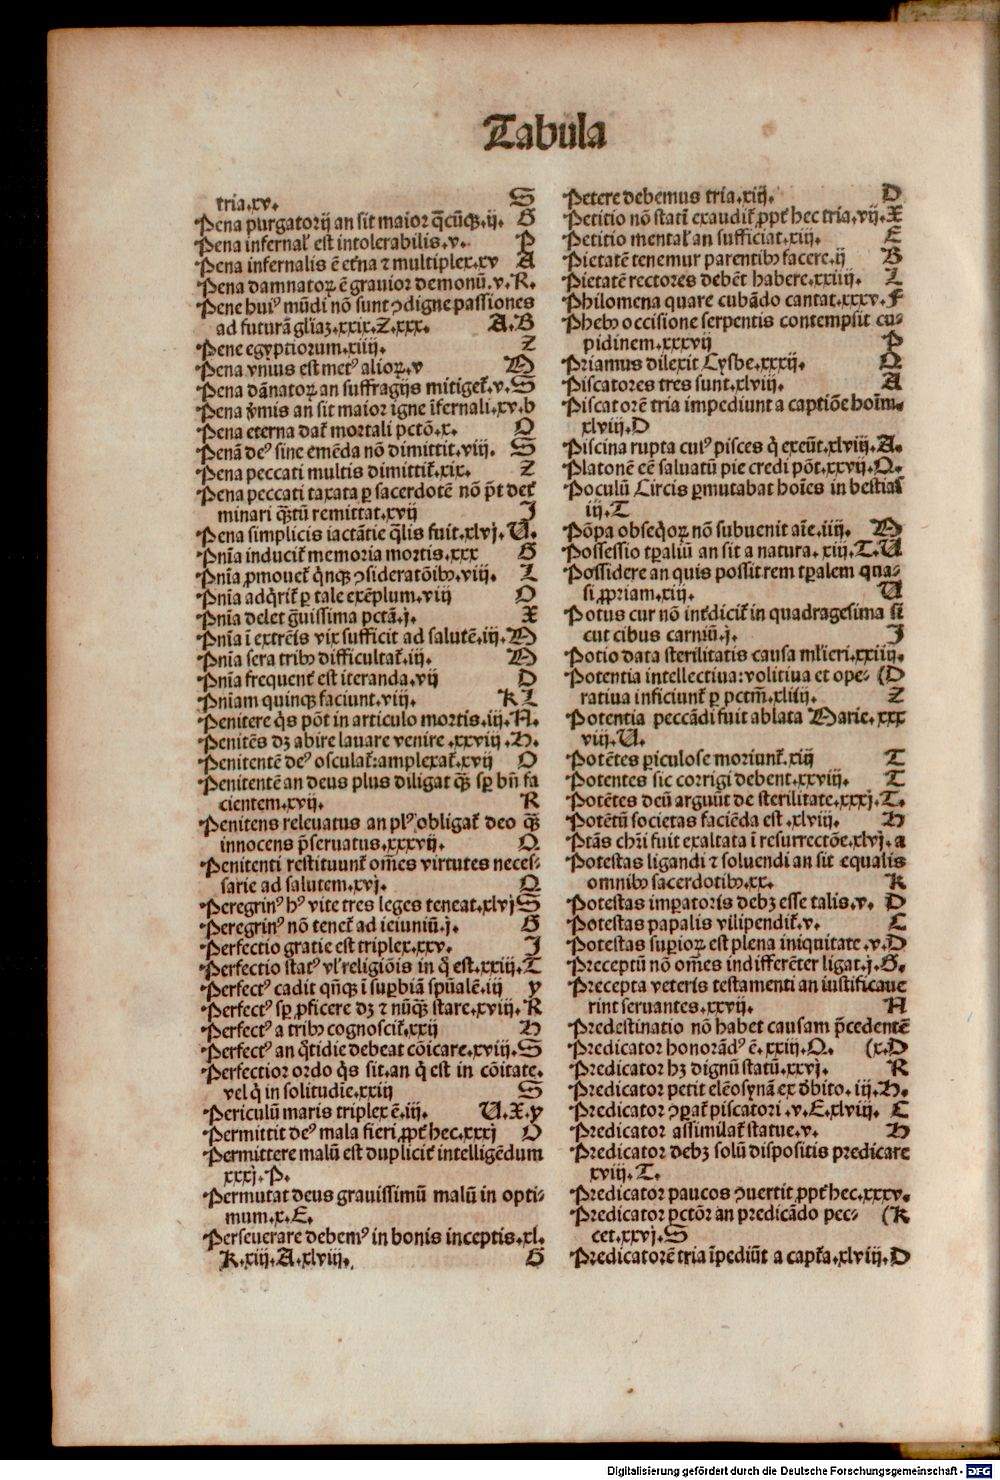 Tabula
tria.xv. S
Pena purgatorij an sit maior q̄cūqꝫ.ij. G
Pena infernal' est intolerabilis.v. P
Pena infernalis ē et̄na ⁊ multiplex.xv A
Pena damnatoꝝ ē grauior demonū.v.R.
Pene huiꝰ mūdi nō sunt ꝯdigne passiones
ad futurā gl̄iaꝫ.xxix.Z.xxx. A.B
Pene egyptiorum.xiiij. Z
Pena vnius est metꝰ alioꝝ.v M
Pena dānatoꝝ an suffragijs mitiget̄.v.S
Pena p̄mis an sit maior igne īfernali.xv.h
Pena eterna dat̄ mortali pctō.x. O
Penā deꝰ sine emēda nō dimittit.viij. S
Pena peccati multis dimittit̄.xix. Z
Pena peccati taxata ꝑ sacerdotē nō p̄t det̄
minari q̄ꝫtū remittat.xvij J
Pena simplicis iactātie q̄lis fuit.xlvj.U.
Pn̄ia inducit̄ memoria mortis.xxx G
Pn̄ia ꝓmouet̄ q̇nqꝫ ꝯsideratōibꝰ.viij. L
Pn̄ia adq̇rit̄ ꝑ tale exēplum.viij O
Pn̄ia delet ḡuissima pctā.j. X
Pn̄ia ī extrēis vix sufficit ad salutē.iij.M
Pn̄ia sera tribꝰ difficultat̄.iij. M
Pn̄ia frequent̄ est iteranda.vij D
Pn̄iam quinqꝫ faciunt.viij. K L
Penitere q̇s pōt in articulo mortis.iij.N.
Penitēs dꝫ abire lauare venire .xxviij .H.
Penitentē deꝰ osculat̄:amplexat̄.xvij O
Penitentē an deus plus diligat q̄ꝫ sꝑ bn̄ fa
cientem.xvij. R
Penitens releuatus an plꝰ obligat̄ deo q̄ꝫ
innocens p̄seruatus.xxxvij. Q.
Penitenti restituunt̄ om̄es virtutes neces-
sarie ad salutem.xvj. Q
Peregrinꝰ hꝰ vite tres leges teneat.xlvj S
Peregrinꝰ nō tenet̄ ad ieiuniū.j. G
Perfectio gratie est triplex.xxv. J
Perfectio statꝰ vl' religiōis in q̇ est.xxiij.T
Perfectꝰ cadit qn̄qꝫ ī suꝑbiā spūalē.iij y
Perfectꝰ sꝑ ꝓficere dꝫ ⁊ nūq̄ꝫ stare.xviij.R
Perfectꝰ a tribꝰ cognoscit̄.xxij H
Perfectꝰ an q̄tidie debeat cōicare.xviij.S
Perfectior ordo q̇s sit.an q̇ est in cōitate.
vel q̇ in solitudīe.xxiij S
Periculū maris triplex ē.iij. U.X.y
Permittit deꝰ mala fieri ꝓpt̄ hec.xxxj O
Permittere malū est duplicit̄ intelligēdum
xxxj.P.
Permutat deus grauissimū malū in opti-
mum.x.E.
Perseuerare debemꝰ in bonis inceptis.xl.
K.xiij.A.xlviij. G
Petere debemus tria.xiij. D
Petitio nō statī exaudit̄ ꝓpt̄ hec tria.vij.X
Petitio mental' an sufficiat.xiij. E
Pietatē tenemur parentibꝰ facere.ij B
Pietatē rectores debēt habere.xxiiij. L
Philomena quare cubādo cantat.xxxv.F
Phebꝰ occisione serpentis contempsit cu-
pidinem.xxxvij P
Priamus dilexit Cysbe.xxxij. Q
Piscatores tres sunt.xlviij. A
Piscatorē tria impediunt a captiōe hoīm.
xlviij.D
Piscina rupta cuiꝰ pisces q̇ exeūt.xlviij.A.
Platonē eē saluatū pie credi pōt.xxvij.Q.
Poculū Circis ꝑmutabat hoīes in bestias
iij.T
Pōpa obseq̇oꝝ nō subuenit aīe.iij. M
Possessio tꝑaliū an sit a natura. xij.T.U
Possidere an quis possit rem tꝑalem qua-
si ꝓpriam.xij. U
Potus cur nō int̄dicit̄ in quadragesima si
cut cibus carniū.j. J
Potio data sterilitatis causa ml'ieri.xxiij.
Potentia intellectiua:volitiua et ope- (D
ratiua inficiunt̄ ꝑ pctm̄.xliij. Z
Potentia peccādi fuit ablata Marie.xxx
viij.U.
Potētes ꝑiculose moriunt̄.xij T
Potentes sic corrigi debent.xxviij. T
Potētes deū arguūt de sterilitate.xxxj.T.
Potētū societas faciēda est .xlviij. H
Ptās chr̄i fuit exaltata ī resurrectōe.xlvj.a
Potestas ligandi ⁊ soluendi an sit equalis
omnibꝰ sacerdotibꝰ.xx. K
Potestas imꝑatoris debꝫ esse talis.v. D
Potestas papalis vilipendit̄.v. C
Potestas suꝑioꝝ est plena iniquitate .v.D
Preceptū nō om̄es indifferēter ligat.j.G.
Precepta veteris testamenti an iustificaue
rint seruantes.xxvij. N
Predestinatio nō habet causam p̄cedentē
Predicator honorādꝰ ē.xxiij.Q. (x.D
Predicator hꝫ dignū statū.xxvj. R
Predicator petit elēosynā ex d̓bito. iij.H.
Predicator ꝯꝑat̄ piscatori .v.E.xlviij. C
Predicator assimilat̄ statue.v. H
Predicator debꝫ solū dispositis predicare
xviij.T.
Predicator paucos ꝯuertit ꝓpt̄ hec.xxxv.
Predicator pctōr an predicādo pec- (K
cet.xxvj.S
Predicatorē tria īpediūt a capt̄a.xlviij.D
Digitalisierung gefördert durch die Deutsche Forschungsgemeinschaft - DFG